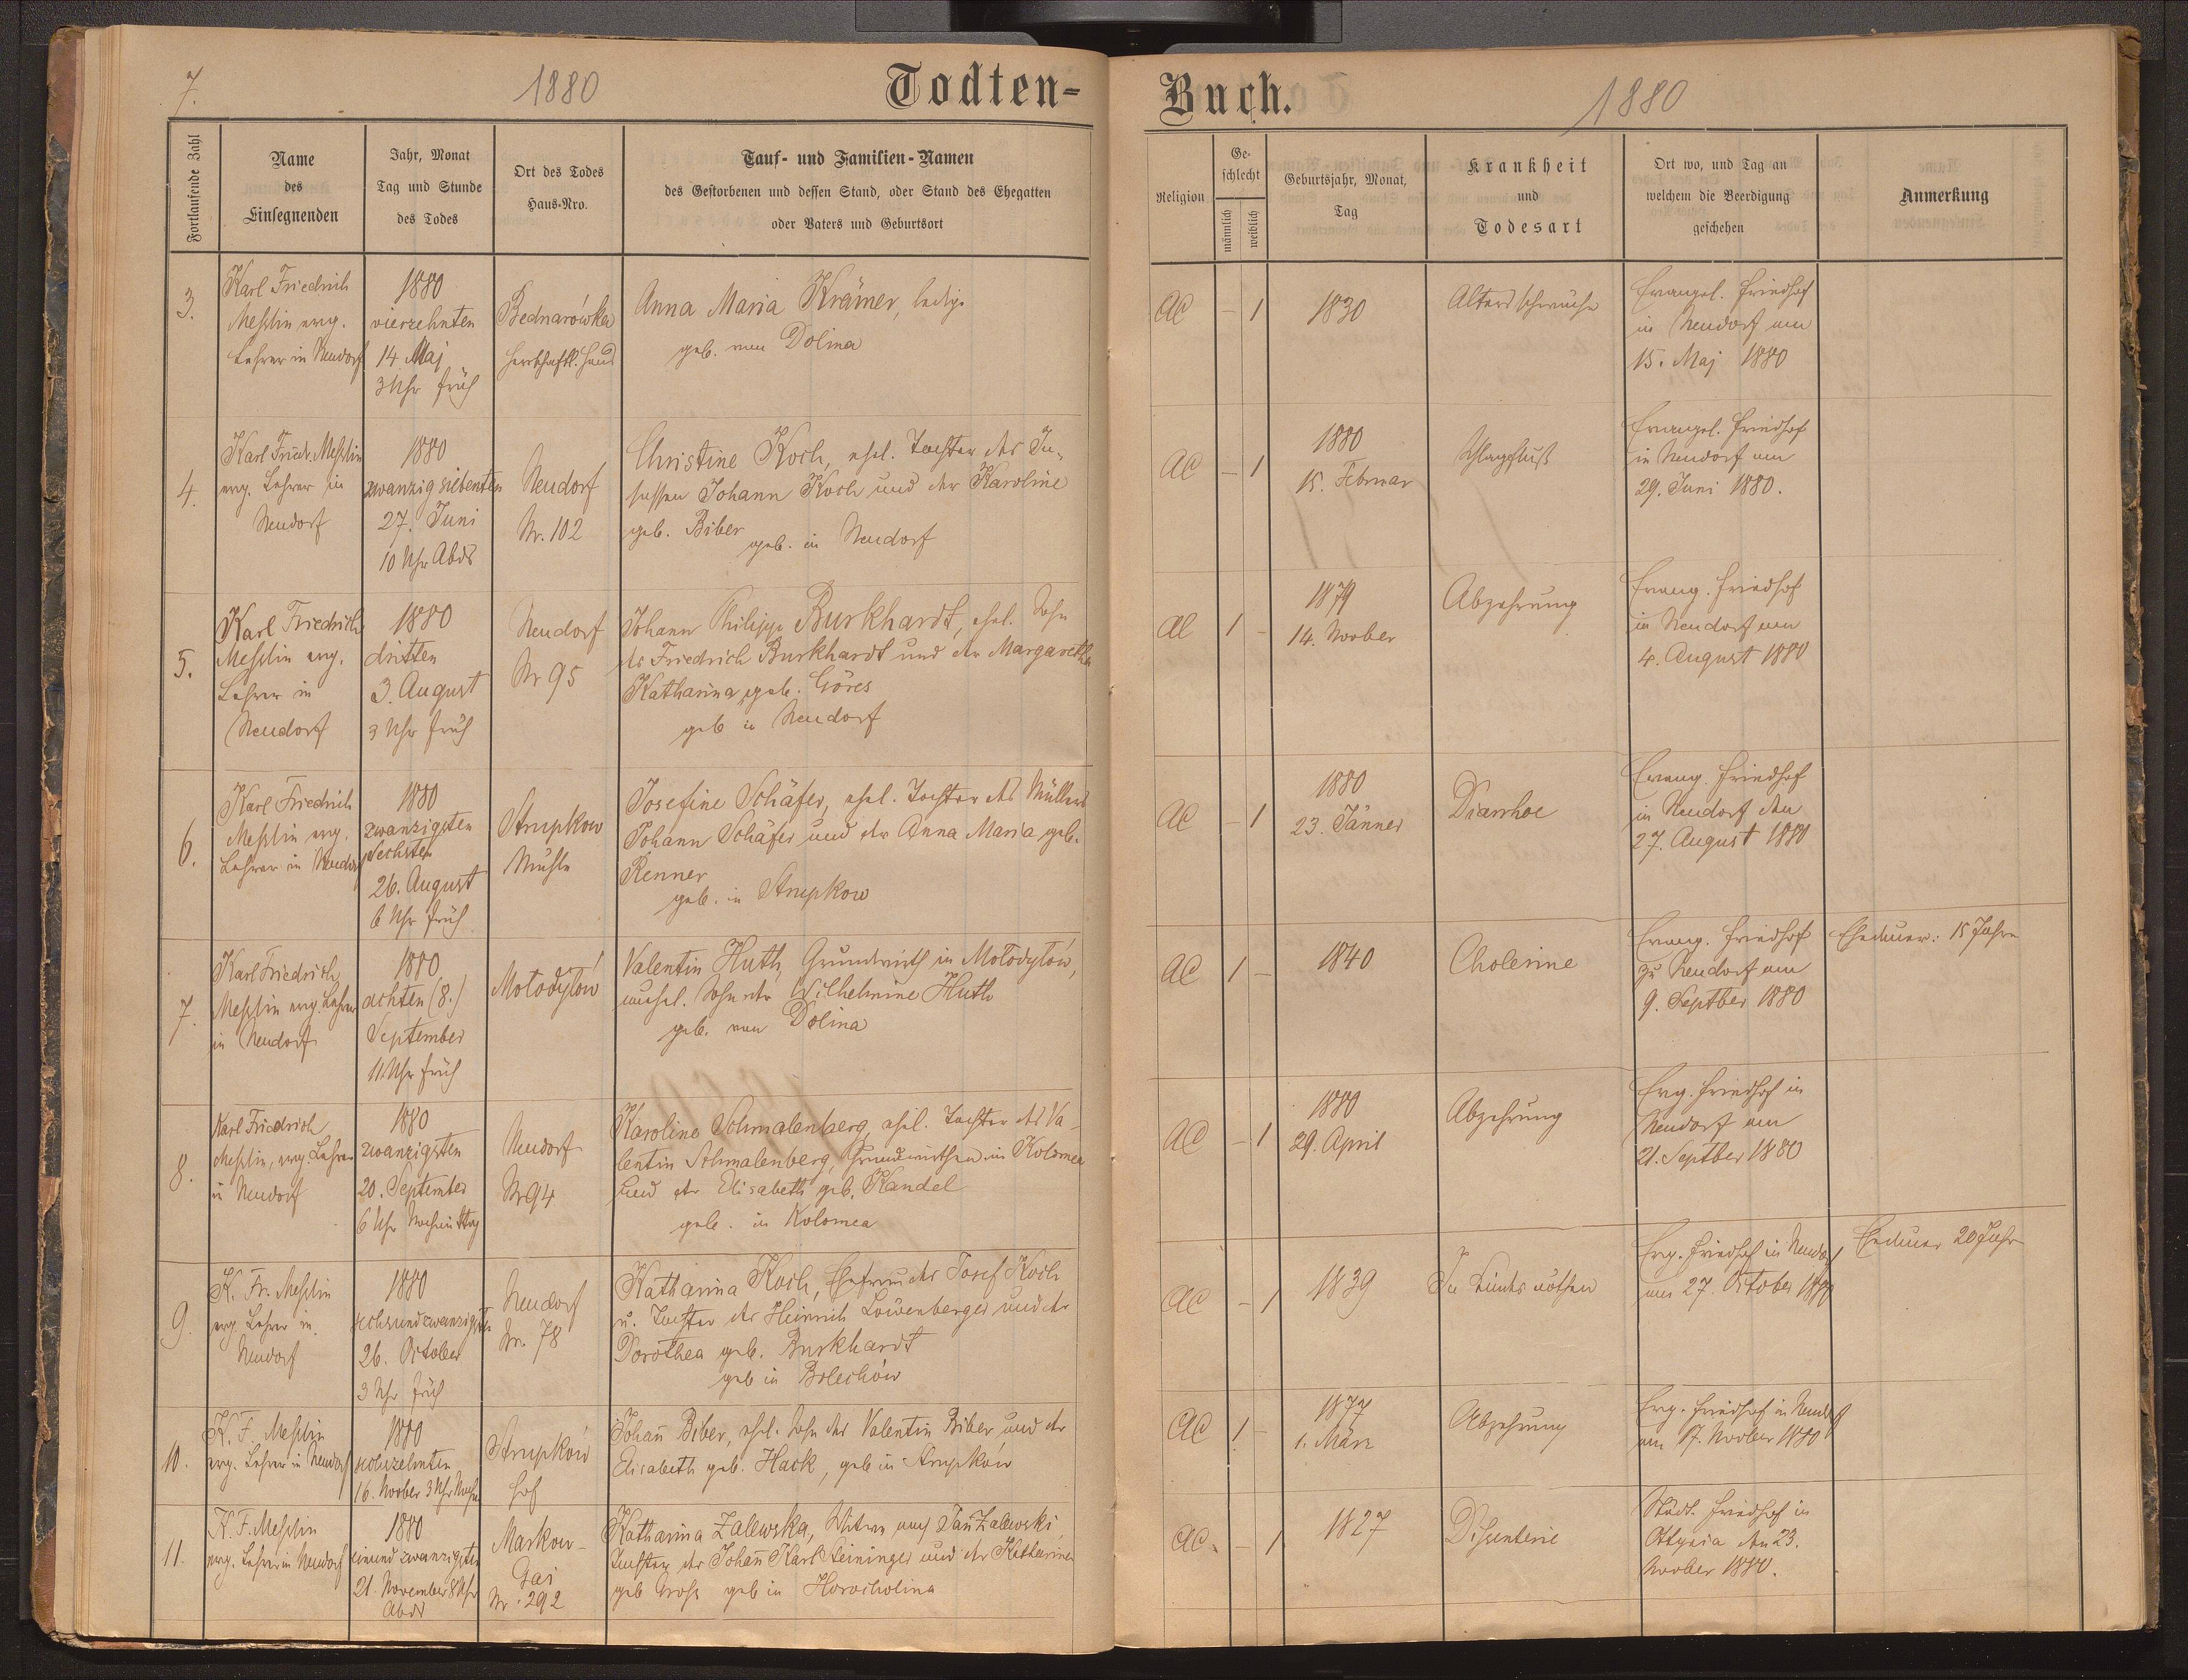 7.
1880
Todten-
Fortlaufende Zahl
Name
des
Einsegnenden
Jahr, Monat
Tag und Stunde
des Todes
Ort des Todes
Haus-Nro.
Tauf- und Familien-Namen
des Gestorbenen und dessen Stand, oder Stand des Ehegatten
oder Vaters und Geburtsort
3.
Karl Friedrich
Meßlin evg.
Lehrer in Neudorf
1880
vierzehnten
14. Maj
3 Uhr früh
Bednarówka
herrschaftl. Haus
Anna Maria Krämer, ledige
geb. von Dolina
4.
Karl Friedr. Meßlin
evg. Lehrer in
Neudorf
1880
zwanzig siebenten
27. Juni
10 Uhr Abds
Neudorf
Nr. 102
Christine Koch, ehel. Tochter des In-
sassen Johann Koch und der Karoline
geb. Biber
geb. in Neudorf
5.
Karl Friedrich
Meßlin evg.
Lehrer in
Neudorf
1880
dritten
3. August
3 Uhr früh
Neudorf
Nr 95
Johann Philipp Burkhardt, ehel. Sohn
des Friedrich Burkhardt und der Margaretha
Katharina geb. Göres
geb in Neudorf
6.
Karl Friedrich
Meßlin evg.
Lehrer in Neudorf
1880
zwanzigsten
Sechsten
26. August
6 Uhr früh
Strupkow
Mühle
Josefine Schäfer, ehel. Tochter des Müllers
Johann Schäfer und der Anna Maria geb.
Renner
geb. in Strupkow
7.
Karl Friedrich
Meßlin evg. Lehrer
in Neudorf
1880
achten (8.)
September
11 Uhr früh
Mołodyłów
Valentin Huth, Grundwirth in Mołodyłów,
unehel. Sohn der Wilhelmine Huth
geb. von Dolina
8.
Karl Friedrich
Meßlin, evg. Lehrer
in Neudorf
1880
zwanzigsten
20. September
6 Uhr Nachmittag
Neudorf
Nr 94
Karoline Schmalenberg, ehel. Tochter des Va-
lentin Schmalenberg, Grundwirthen in Kolomea
und der Elisabeth geb. Kandel
geb. in Kolomea
9.
K. Fr. Meßlin
evg. Lehrer in
Neudorf
1880
sechsundzwanzigsten
26. October
3 Uhr früh
Neudorf
Nr. 78
Katharina Koch, Ehefrau des Josef Koch
u. Tochter des Heinrich Löwenberger und der
Dorothea geb. Burkhardt
geb in Bolechów
10.
K. F. Meßlin
evg. Lehrer in Neudorf
1880
sechszehnten
16. Novber 3 Uhr Nachm
Strupków
Hof
Johann Biber, ehel. Sohn des Valentin Biber und der
Elisabeth geb. Hack, geb in Strupków
11.
K. F. Meßlin
evg. Lehrer in Neudorf
1880
einund zwanzigsten
21. November 8 Uhr
Abds
Markow-
Gai
Nr. 292
Katharina Zalewska, Witwe nach Jan Zalewski,
Tochter des Johann Karl Steininger und der Katharina
geb Groß geb in Horocholina
Buch.
1880
Religion
Ge-
schlecht
männlich
weiblich
Geburtsjahr, Monat,
Tag
Krankheit
und
Todesart
Ort wo, und Tag an
welchem die Beerdigung
geschehen
Anmerkung
AC
-
1
1830
Altersschwäche
Evangel. Friedhof
in Neudorf am
15. Maj 1880
AC
-
1
1880
15. Februar
Schlagfluß
Evangel. Friedhof
in Neudorf am
29. Juni 1880.
AC
1
-
1879
14. Novber
Abzehrung
Evang. Friedhof
in Neudorf am
4. August 1880
AC
-
1
1880
23. Jänner
Diarrhoe
Evang. Friedhof
in Neudorf den
27. August 1880
AC
1
-
1840
Cholerine
Evang. Friedhof
zu Neudorf am
9. Septber 1880
Ehedauer: 15 Jahre
AC
-
1
1880
29. April
Abzehrung
Evg. Friedhof in
Neudorf am
21. Septber 1880
AC
-
1
1839
In Kindsnöthen
Evg. Friedhof in Neudorf
am 27. October 1880
Ehedauer 20 Jahre
AC
1
-
1877
1. März
Abzehrung
Evg. Friedhof in Neudorf
am 17. Novber 1880
AC.
-
1
1827
Dißenterie
Städt. Friedhof in
Ottynia den 23.
Novber 1880.